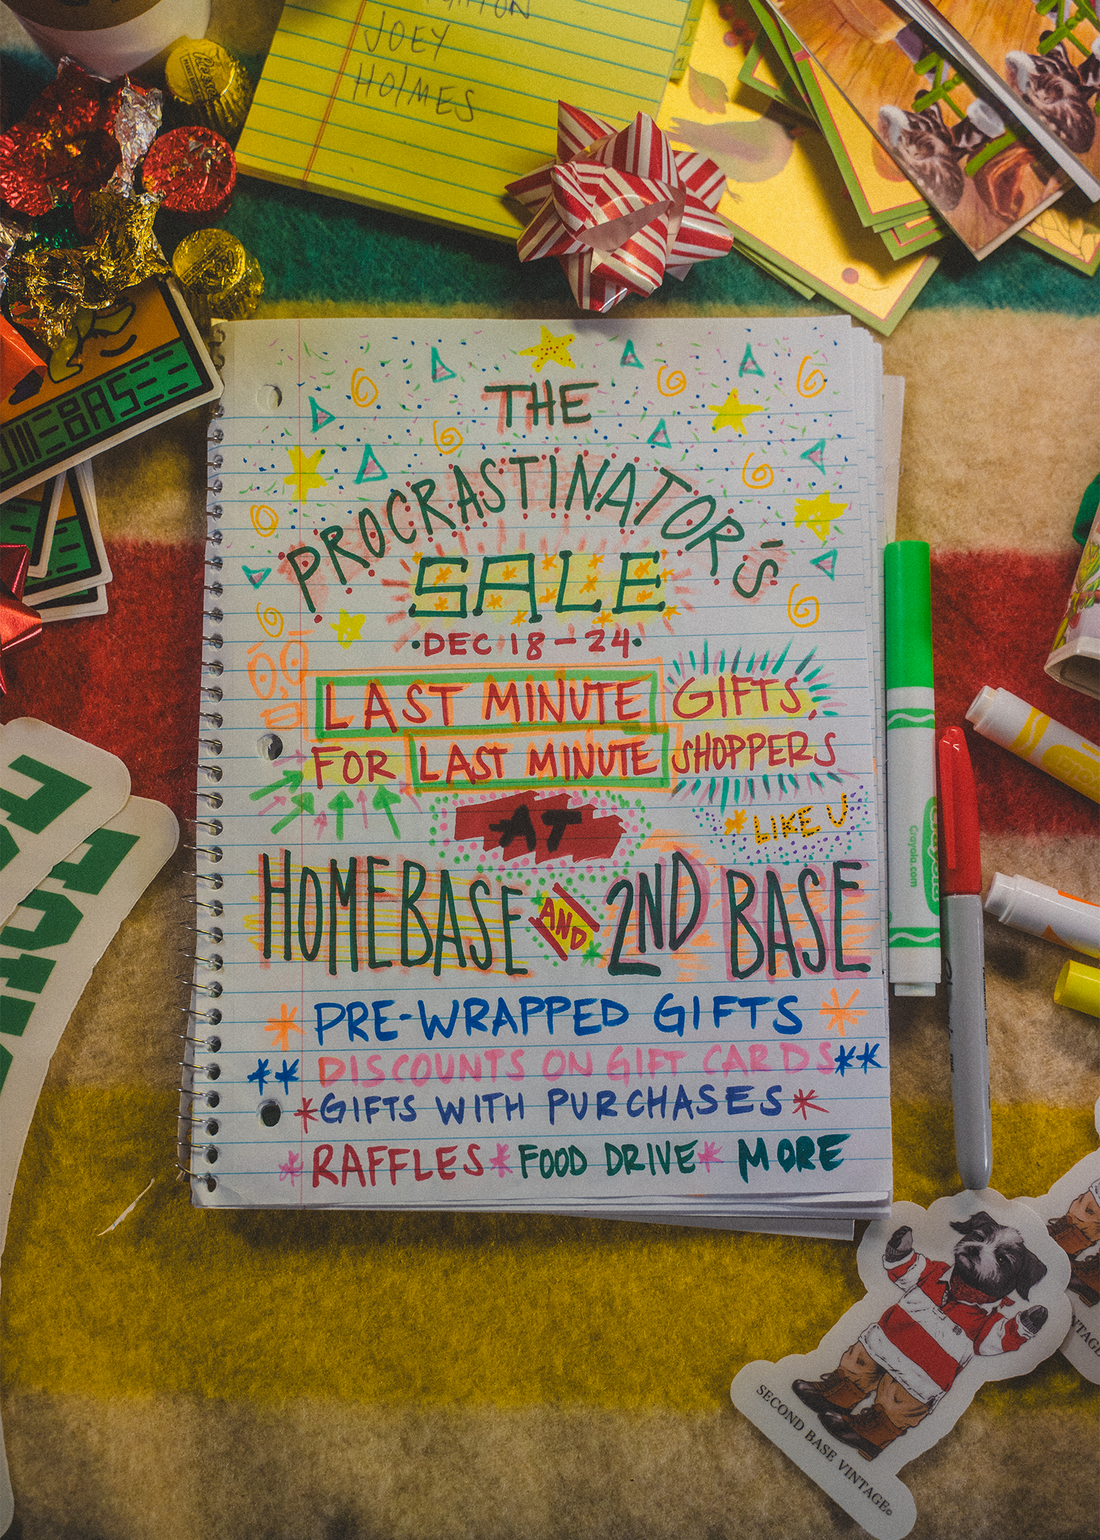 JOEY
HOLMES
THE
PROCRASTINATOR'S
SALE
·DEC 18 – 24·
LAST MINUTE GIFTS,
FOR LAST MINUTE SHOPPERS
AT
*LIKE U
HOMEBASE AND 2ND BASE
*PRE-WRAPPED GIFTS*
**DISCOUNTS ON GIFT CARDS**
*GIFTS WITH PURCHASES*
*RAFFLES*FOOD DRIVE*MORE
Crayola.com
SECOND BASE VINTAGE©